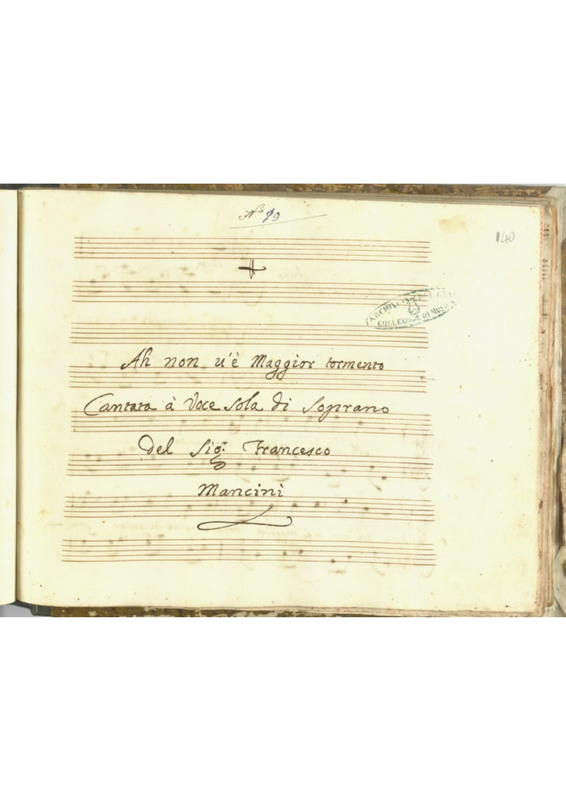 N.º 19
140
ARCHIVIO DEL REAL
COLLEGIO DI MUSICA
Ah non u'è Maggior tormento
Cantata à Voce Sola di Soprano
Del Sig.r Francesco
Mancini